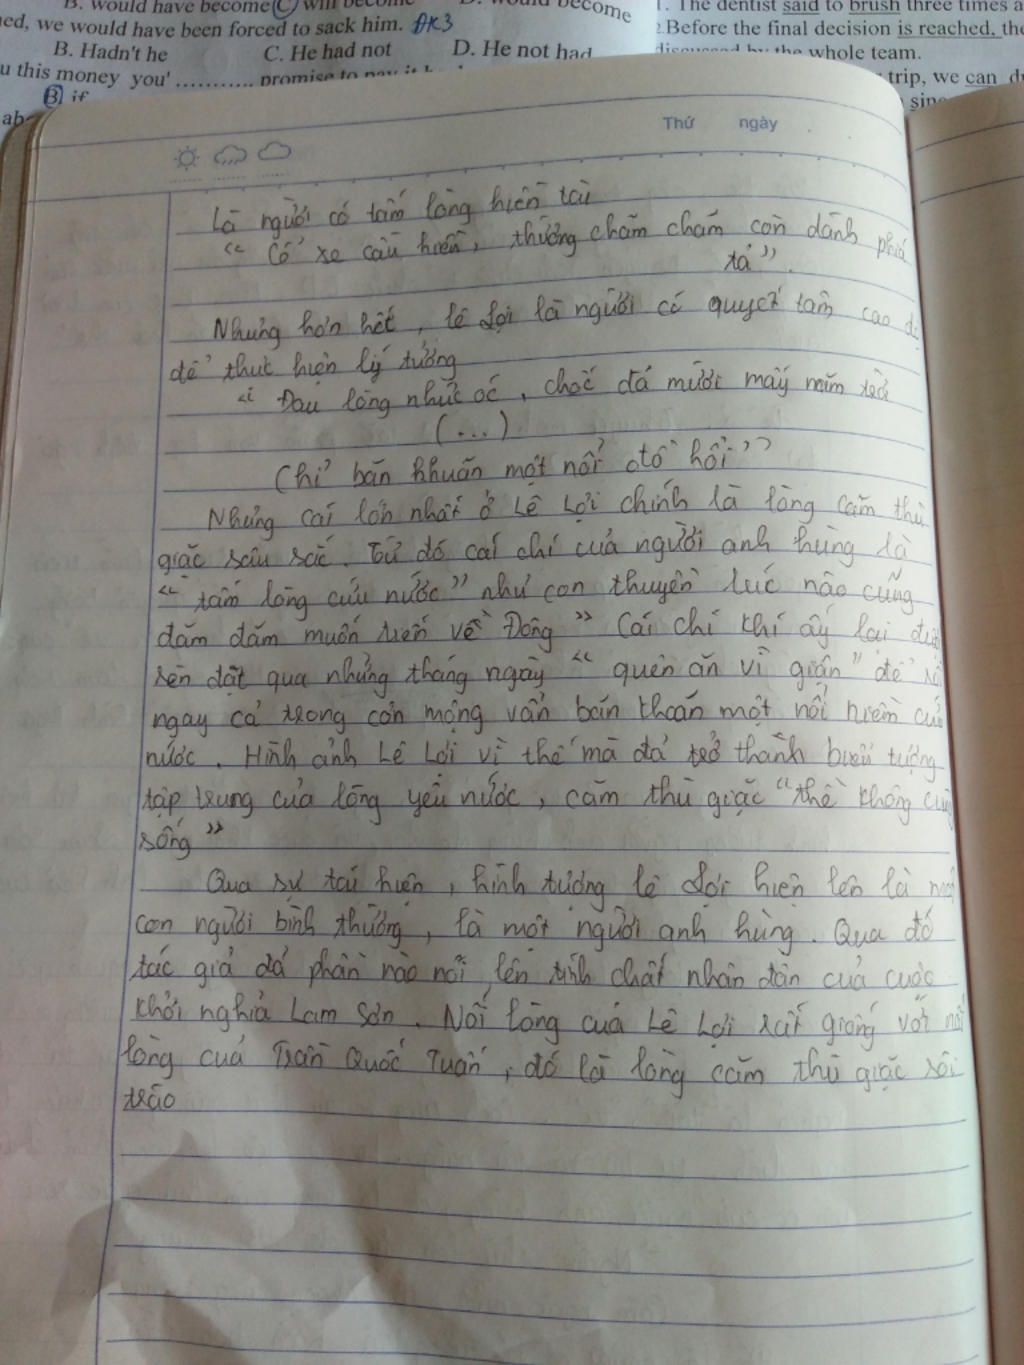 B. would have become C) will become D. would become
ned, we would have been forced to sack him. ĐK3
B. Hadn't he C. He had not D. He not had
u this money you' ........... promise to pay it
B. if
ab
1. The dentist said to brush three times a
2.Before the final decision is reached, the
discussed by the whole team.
trip, we can
sinc
Thứ ngày
Là người có tấm lòng hiền tài
" Cỗ xe cầu hiền, thường chăm chăm còn dành phía
tả".
Nhưng hơn hết, lê Lợi là người có quyết tâm cao
để thực hiện lý tưởng
" Đau lòng nhức óc, chốc đá mười mấy năm trời
(...)
Chỉ băn khuăn một nỗi đồ hồi"
Nhưng cái lớn nhất ở Lê Lợi chính là lòng căm thù
giặc sâu sắc. Từ đó cái chí của người anh hùng là
" tấm lòng cứu nước" như con thuyền lúc nào cũng
đăm đăm muốn tiến về Đông" Cái chí khí ấy lại
rèn dặt qua những tháng ngày " quên ăn vì giận" để
ngay cả trong cơn mộng vẫn băn khoăn một nỗi niềm
nước. Hình ảnh Lê Lợi vì thế mà đã trở thành biểu tượng
tập trung của lòng yêu nước, căm thù giặc "thề không
sống"
Qua sự tái hiện, hình tượng lê Lợi hiện lên là
con người bình thường, là một người anh hùng. Qua đó
tác giả đã phần nào nói lên tính chất nhân dân của cuộc
khởi nghĩa Lam Sơn. Nỗi lòng của Lê Lợi rất giống với
lòng của Trần Quốc Tuấn, đó là lòng căm thù giặc sôi
trào